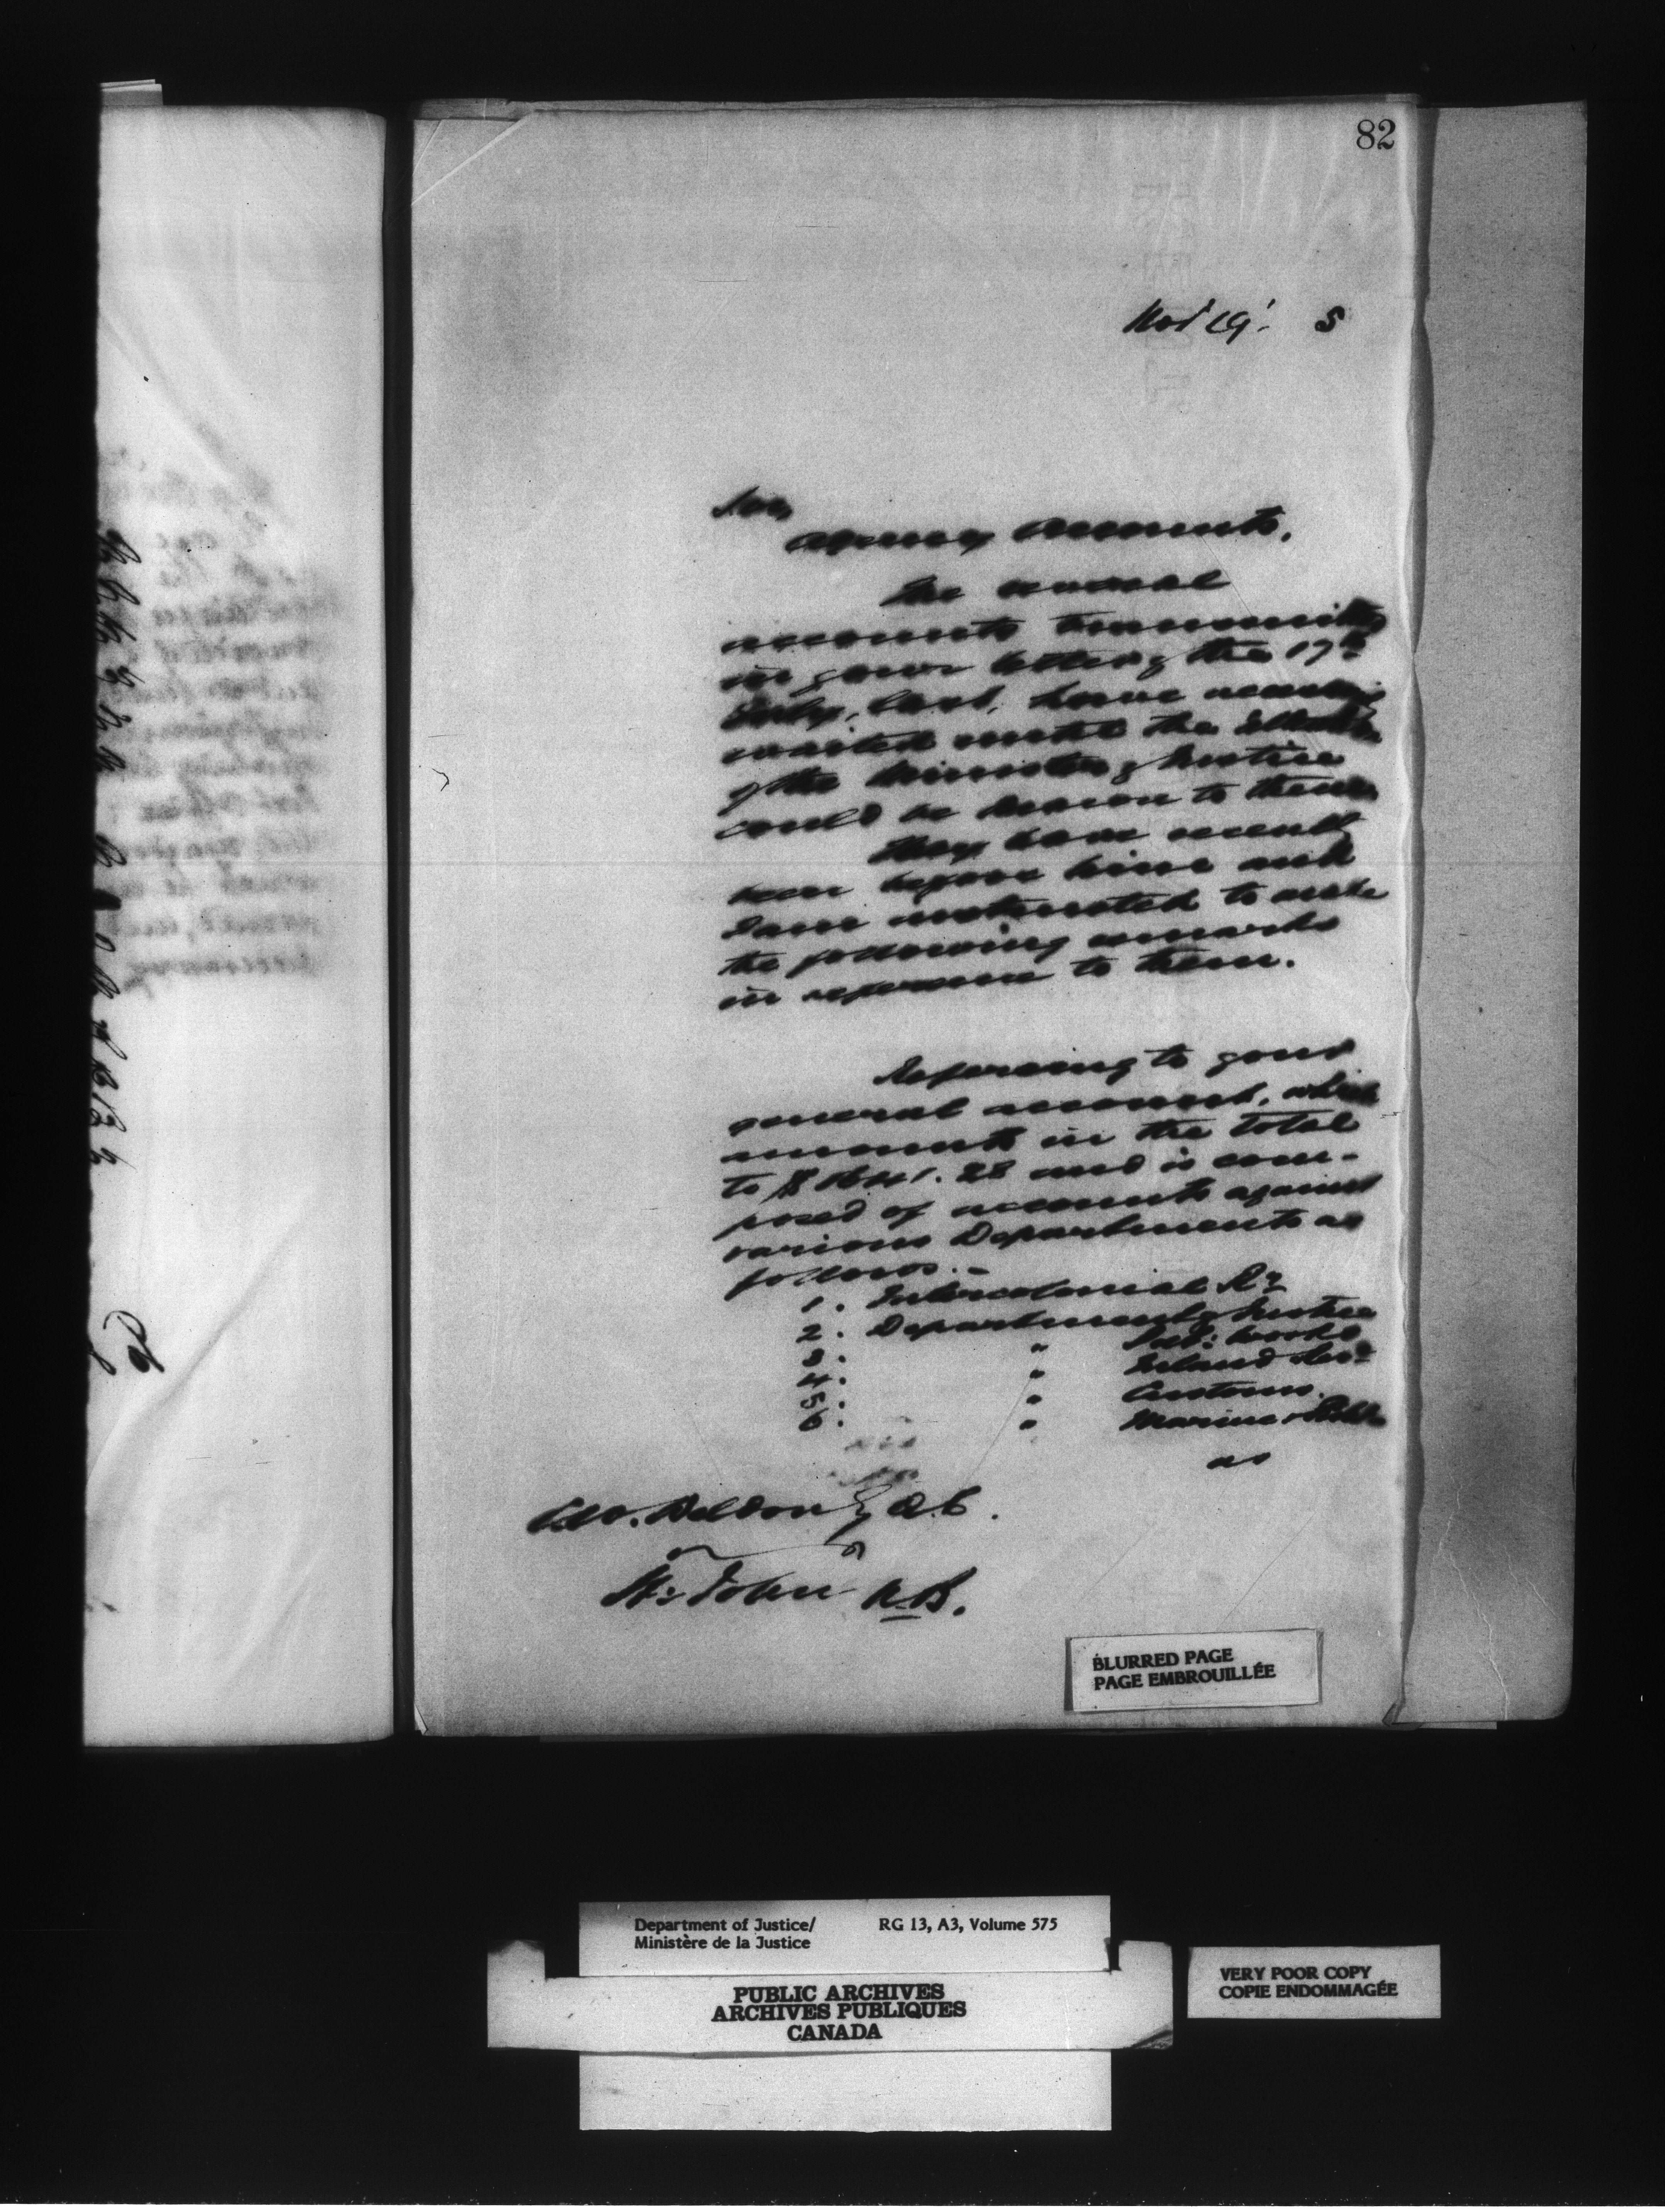 82
Nov 19. 5
Sir,
Agency Accounts.
The several
accounts transmitted
in your letter of the 17th
July, last, have necessarily
waited until the attention
of the Minister of Justice
could be drawn to them.
They have recently
been before him and
I am instructed to make
the following remarks
in reference to them.
Referring to your
general account, which
amounts in the total
to $ and is com-
posed of accounts against
various Departments as
follows. -
1. Intercolonial Ry
2. Department of Justice
3. " Pub: Works
4. " Inland Revd
5. " Customs.
6. " Marine &
as
C.W. Weldon Q.C.
St. John N.B.
BLURRED PAGE
PAGE EMBROUILLÉE
Department of Justice/ RG 13, A3, Volume 575
Ministère de la Justice
PUBLIC ARCHIVES
ARCHIVES PUBLIQUES
CANADA
VERY POOR COPY
COPIE ENDOMMAGÉE